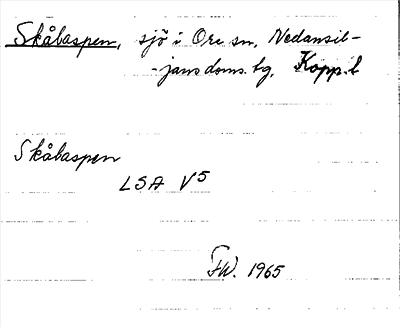 Skåbaspen, sjö i Ore sn, Nedansil-
jans doms. hg, Kopp. l
Skåbaspen
LSA V5
FW. 1965